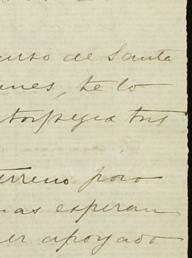 curso de Santa
unes, te lo
torpeza tus
terreno pero
mas esperan
er apoyado